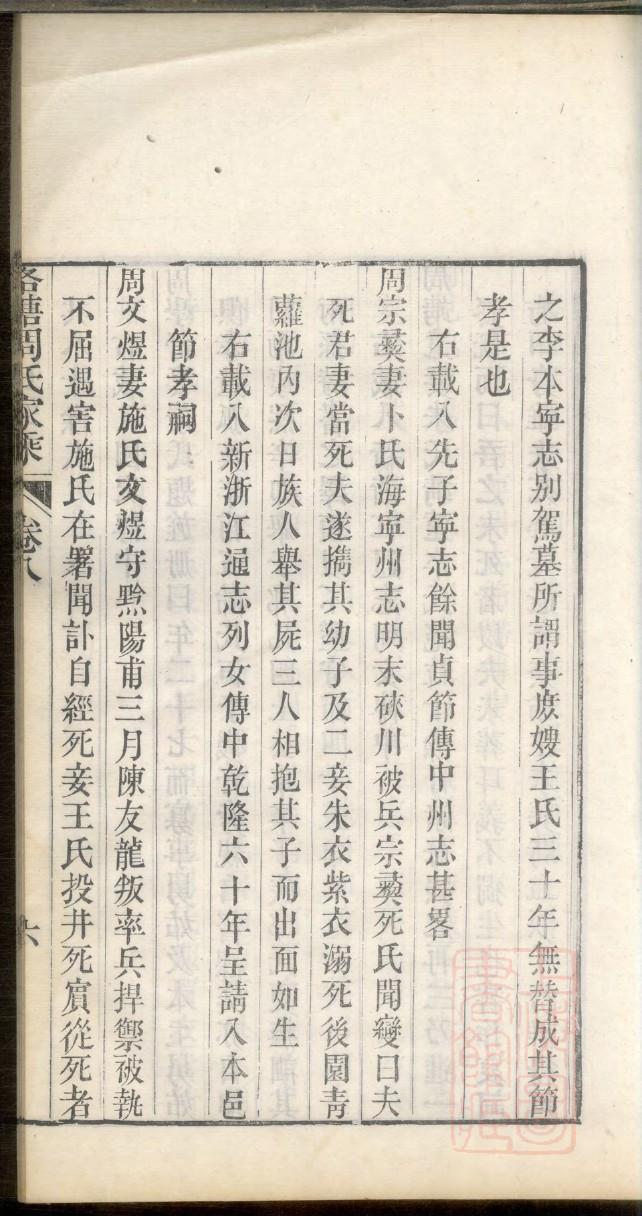 之李本寧志別駕墓所謂事庶嫂王氏三十年無替成其節
孝是也
右載入先子寧志餘聞貞節傳中州志甚畧
周宗彝妻卜氏海寧州志明末硤川被兵宗彝死氏聞變曰夫
死君妻當死夫遂擕其幼子及二妾朱衣紫衣溺死後園青
蘿池內次日族人舉其屍三人相抱其子而出面如生
右載入新浙江通志列女傳中乾隆六十年呈請入本邑
節孝祠
周文煜妻施氏文煜守黔陽甫三月陳友龍叛率兵捍禦被執
不屈遇害施氏在署聞訃自經死妾王氏投井死賔從死者
洛塘周氏家乘
卷八
六